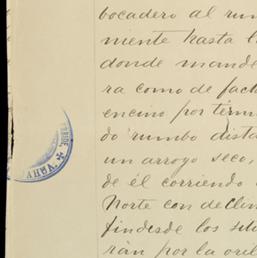 bocadero al rum
mente hasta l
donde mande
ra como de fact
encino por térm
do rumbo dista
un arroyo seco,
de él corriendo
Norte con declin
findesde los situ
rán por la oril